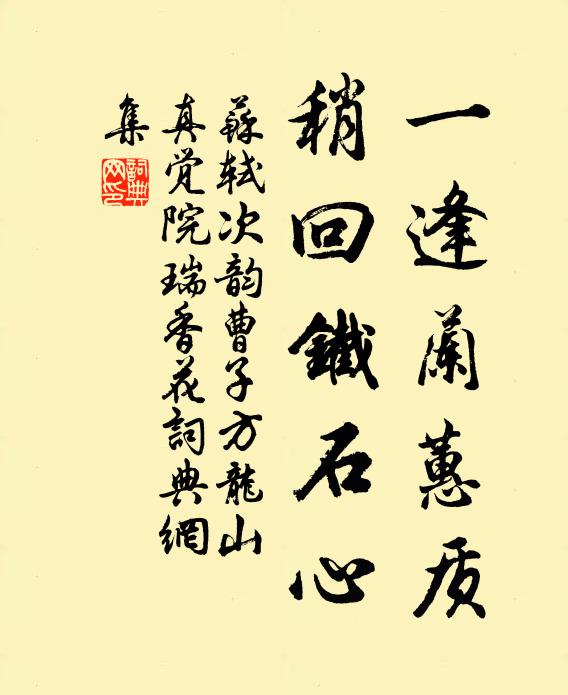 一逢蘭蕙质
稍回鐵石心
蘇轼次韵曹子方龍山
真觉院瑞香花詞典網
集
詞典
网印